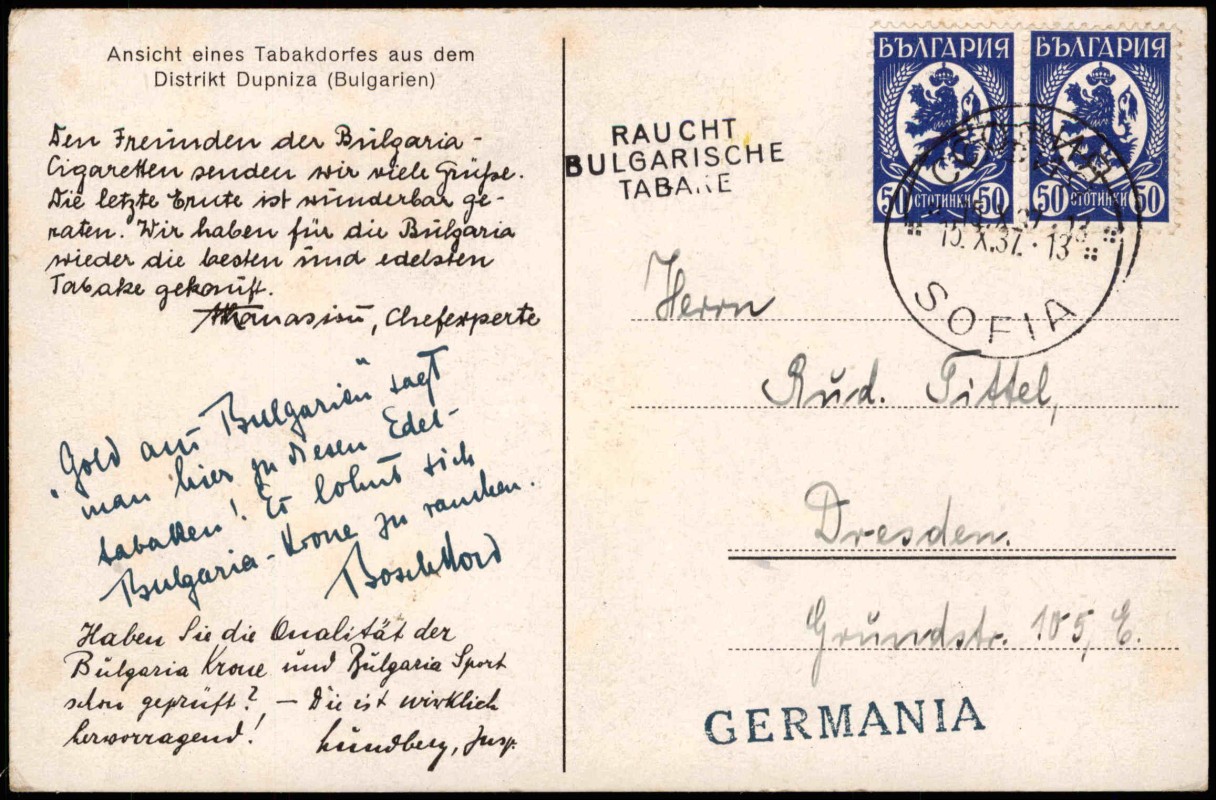 Ansicht eines Tabakdorfes aus dem
Distrikt Dupniza (Bulgarien)
Den Freunden der Bulgaria-
Cigaretten senden wir viele Grüße.
Die letzte Ernte ist wunderbar ge-
raten. Wir haben für die Bulgaria
wieder die besten und edelsten
Tabake gekauft.
Athanasiu, Chefexperte
"Gold aus Bulgarien" sagt
man hier zu diesen Edel-
tabaken! Es lohnt sich
Bulgaria-Krone zu rauchen.
Haben Sie die Qualität der
Bulgaria Krone und Bulgaria Sport
schon geprüft? – Die ist wirklich
hervorragend!
Lundberg, Insp.
RAUCHT
BULGARISCHE
TABAKE
БЪЛГАРИЯ
50 СТОТИНКИ 50
БЪЛГАРИЯ
50 СТОТИНКИ 50
15.X.37.-13
SOFIA
Herrn
Rud. Tittel,
Dresden.
Grundstr. 105, E.
GERMANIA